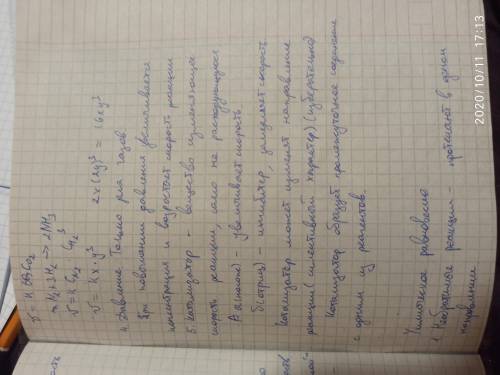 N₂+3H₂ → 2NH₃
υ = k C
υ = k x · y³ 2x(2y)³ = 16xy³
4. Давление только для газов
При повышении давления увеличивается
концентрация и возрастает скорость реакции
5. Катализатор - вещество изменяющее
скорость реакции, само не расходующееся
увеличивает скорость
ингибитор, замедляет скорость
Катализатор может изменят направление
реакции (селективной характер) (избирательно)
Катализатор образует промежуточное соединение
с одним из реагентов.
Химическое равновесие
1. реакции - протекают в одном
направлении
2020/10/11 17:13